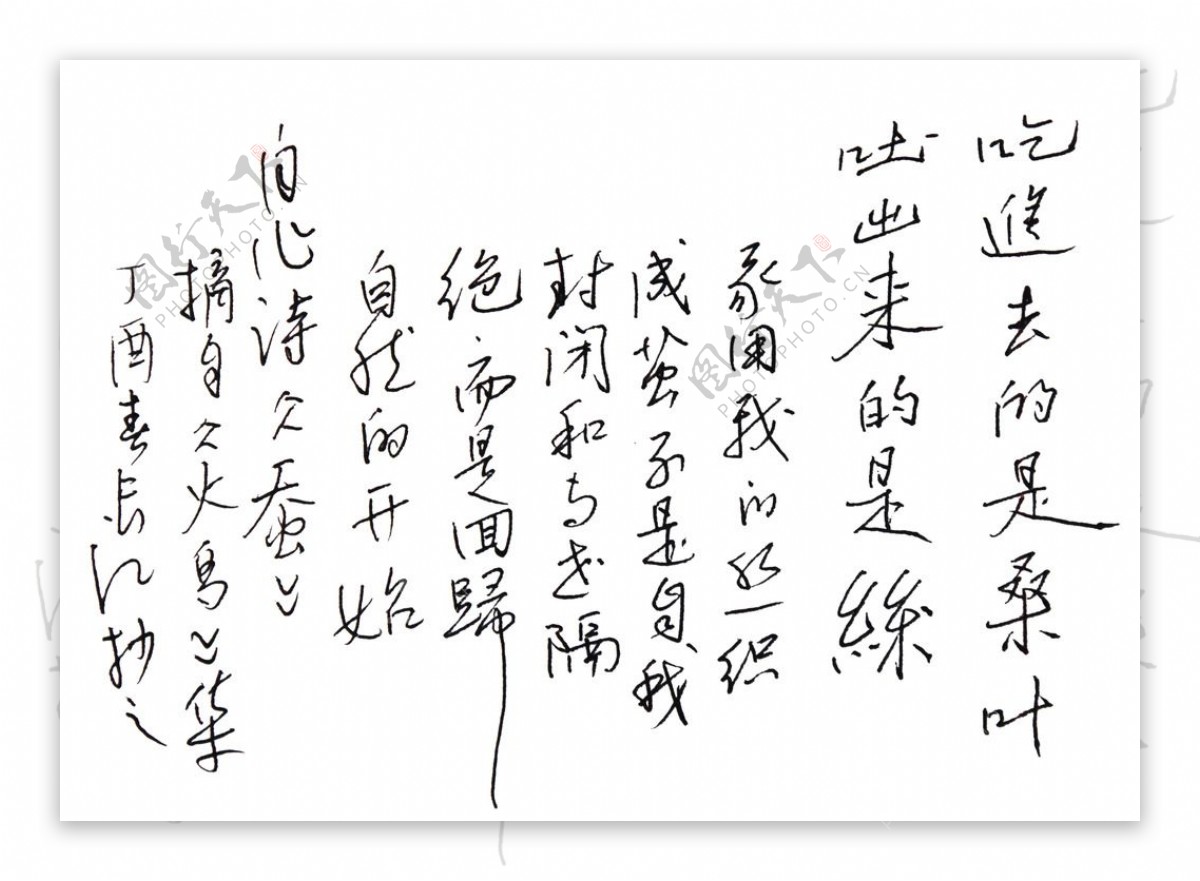 吃進去的是桑叶
吐出来的是絲
用我的丝织
成茧不是自我
封闭和与世隔
绝而是回歸
自然的开始
诗《蚕》
摘自《火鳥》集
丁酉春長江抄之
图行天下
PHOTOPHOTO.CN
图行天下
PHOTOPHOTO.CN